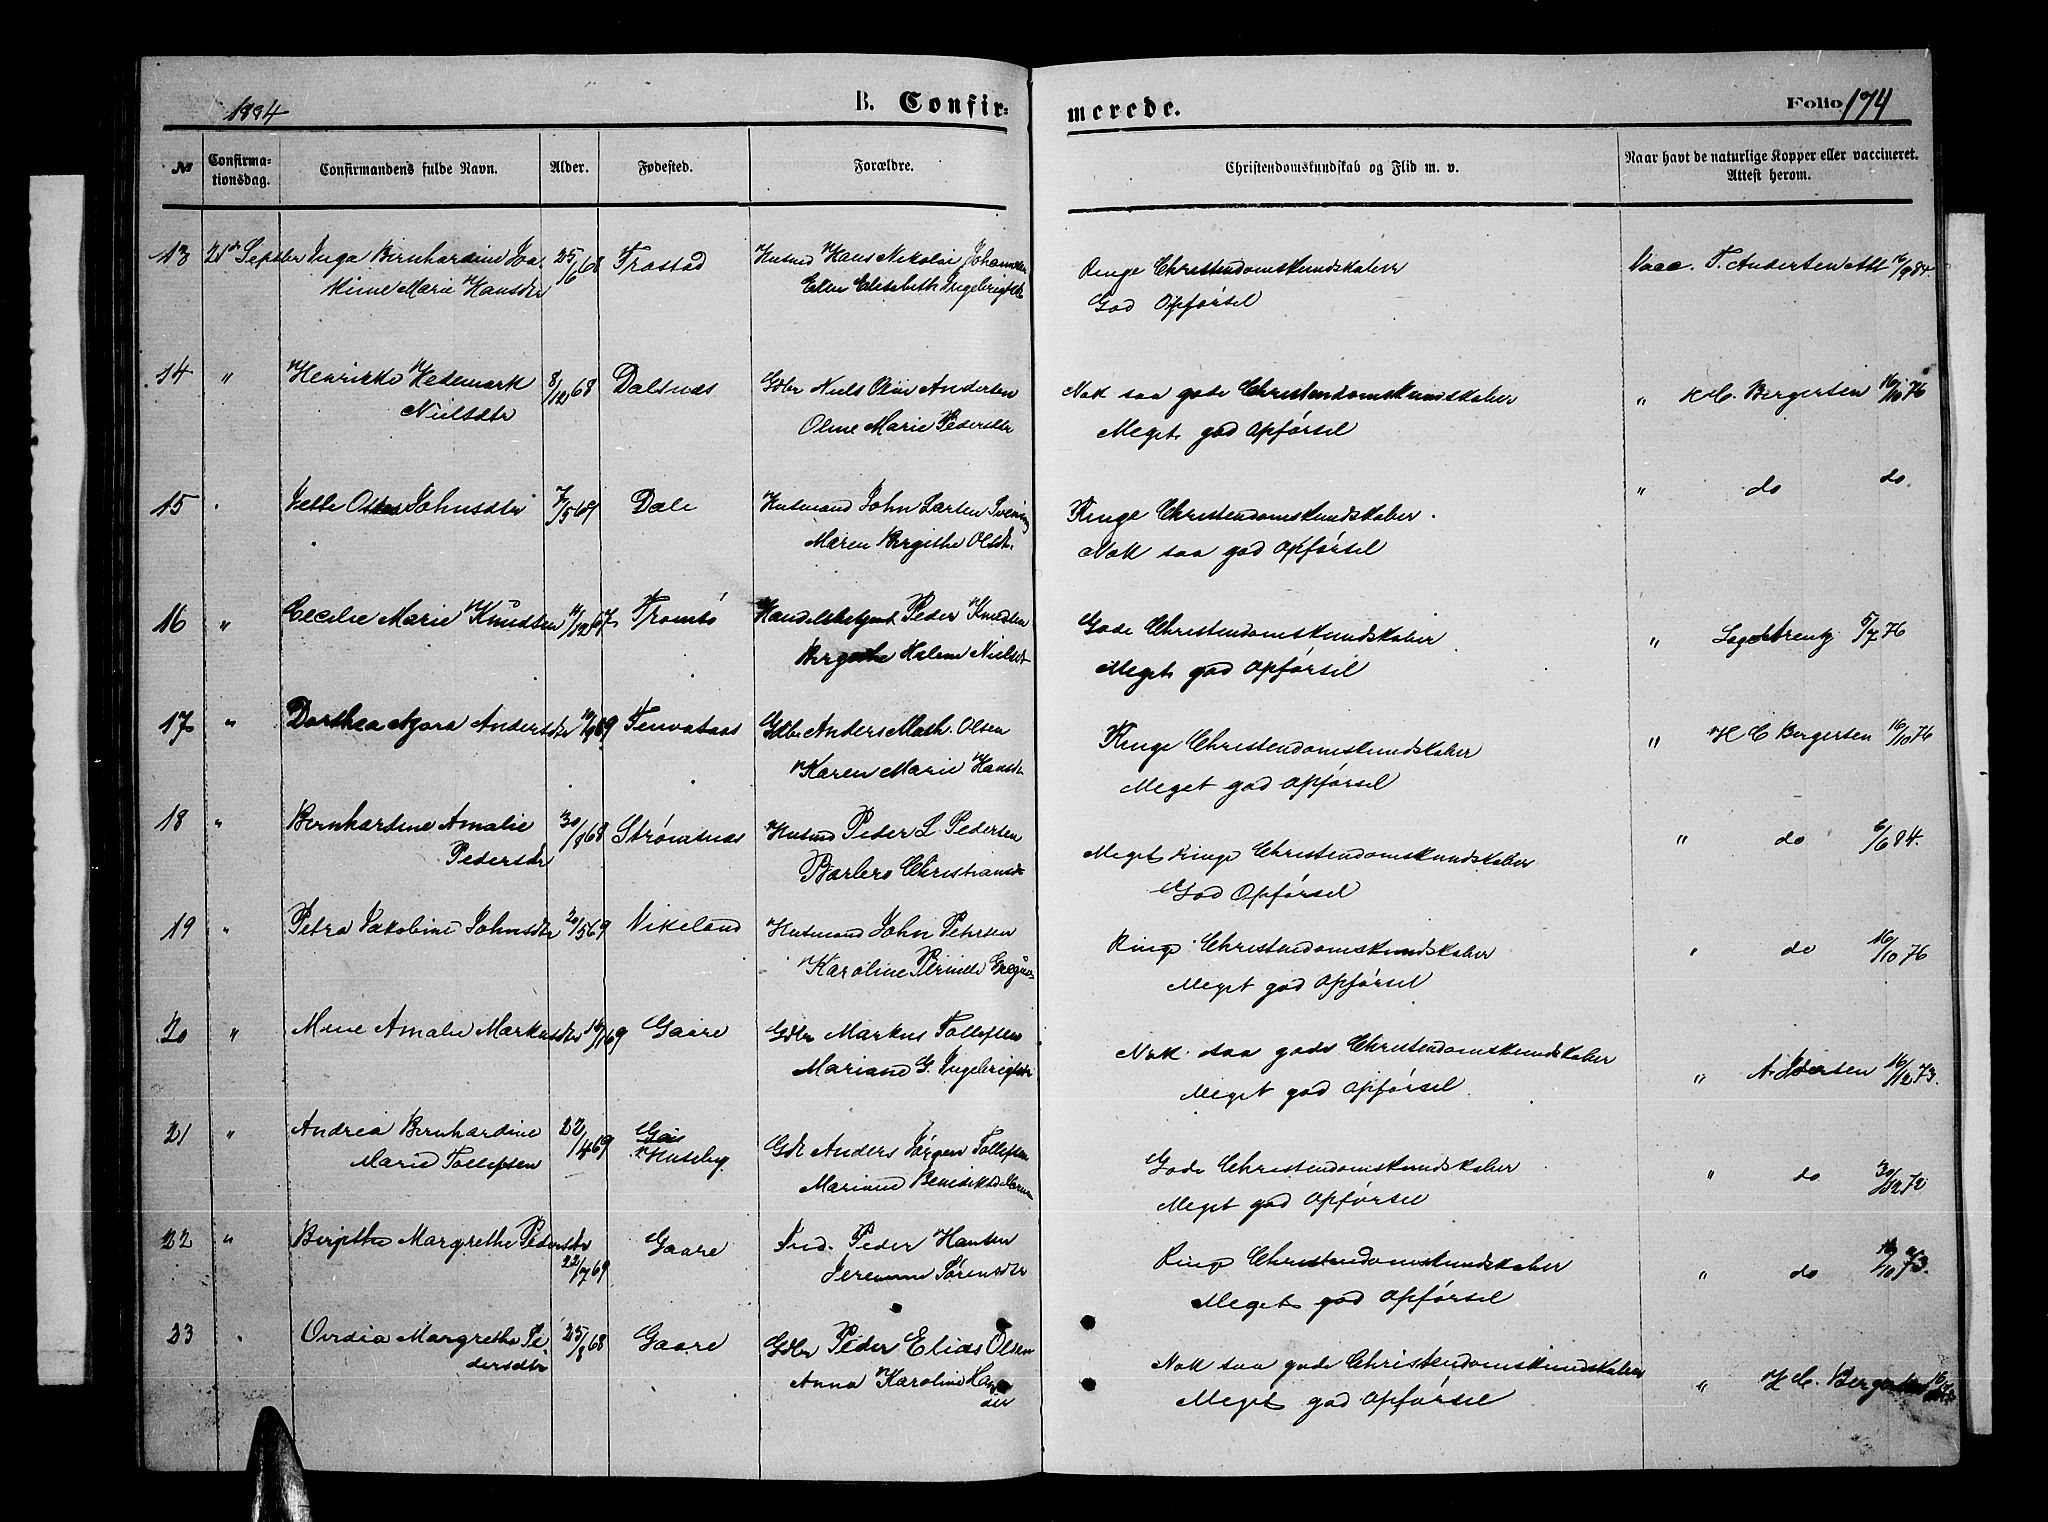 1884 B. Confirmerede. Folio 174
№ Confirmationsdag. Confirmandens fulde Navn. Alder. Fødested. Forældre. Christendomskundskab og Flid m. v. Naar havt de naturlige Kopper eller vaccineret. Attest herom.
13 21de Septbr Inga Bernhardine Joa- 25/6 68 Trastad Husmd Hans Nikolai Johannesen Ringe Christendomskundskaber Vacc. T. Andersen Att 16/9 84.
kime Marie Hansdtr Ellen Elisabeth Ingebrigtsdtr God Opførsel
14 " Henrikke Hedemark 8/12 68 Dalsnæs Gdbr Niels Olai Andersen Nok saa gode Christendomskundskaber " H C. Bergersen 16/10 76
Nielsdtr Oline Marie Pedersdtr Meget god Opførsel
15 " Jette Johnsdtr 7/5 69 Dale Husmand John Larsen Ringe Christendomskundskaber. " do do
Maren Bergithe Olsdtr. Nok saa god Opførsel
16 " Cecilie Marie Knudsen 11/12 67 Tromsø Handelsbetjent Peder Knudsen Gode Christendomskundskaber " 5/7 76
Halene Nielsdtr Meget god Opførsel
17 " Dorthea Nora Andersdtr 69 Tenvatsas Gdbr Anders Math. Olsen Ringe Christendomskundskaber " H C Bergersen 16/10 76
Karen Marie Hansdtr Meget god Opførsel
18 " Bernhardine Amalie 30/8 68 Strømsnæs Husmd Peder L. Pedersen Meget Ringe Christendomskundskaber " do 6/6 84.
Pedersdtr Barbero Christiansdtr God Opførsel
19 " Petra Jakobine Johnsdtr 20/5 69 Vikeland Husmand John Petersen Ringe Christendomskundskaber " do 16/10 76
Karoline Pernele Meget god Opførsel
20 " Mine Amalie Markusdtr 16/1 69 Gaare Gdbr Markus Tollefsen Nok saa gode Christendomskundskaber " A. Iversen 16/12 73.
Mariane G. Ingebrigtsdtr Meget god Opførsel
21 " Andrea Bernhardine 22/4 69 Gaas Gdb Anders Jørgen Tollefsen Gode Christendomskundskaber " do 30/12 72
Marie Tollefsen Huseby Mariane Benedikte Meget god Opførsel
22 " Birgitte Margrethe Pedersdtr 22/7 69 Gaare Ind. Peder Hansen Ringe Christendomskundskaber " do 10/10 73.
Jeremine Sørensdtr Meget god Opførsel
23 " Ovidia Margrethe Pe- 25/8 68 Gaare Gdbr Peder Elias Olsen Nok saa gode Christendomskundskaber " H C. Bergersen
dersdtr Anna Karoline Meget god Opførsel